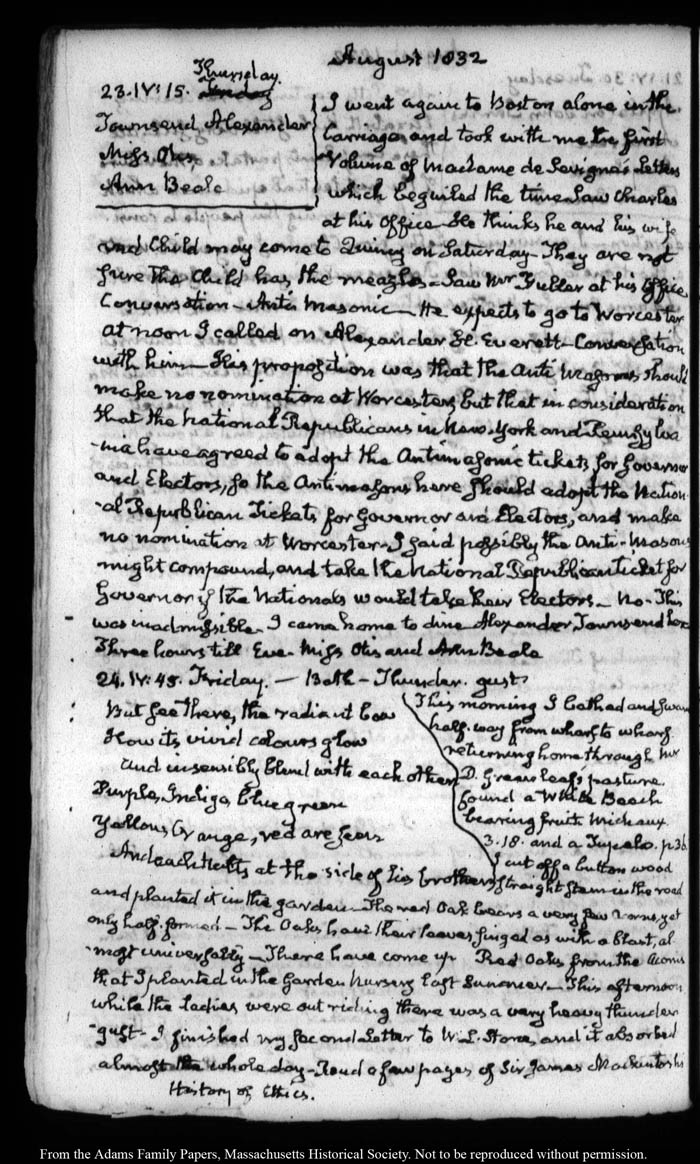 August 1832
23. IV: 15. Thursday.
Townsend Alexander
Miss Otis,
Ann Beale
I went again to Boston alone in the
Carriage, and took with me the first
Volume of Madame de Sevigné's Letters
which beguiled the time. Saw Charles
at his Office. He thinks he and his wife
and Child may come to Quincy on Saturday. They are not
sure the Child has the measles. Saw Mr Fuller at his Office
Conversation. Anti Masonic. He expects to go to Worcester
At noon I called on Alexander H. Everett. Conversation
with him. His proposition was that the Anti Masons should
make no nomination at Worcester, but that in consideration
that the National Republicans in New-York and Pennsylva
-nia have agreed to adopt the Antimasonic tickets for Governor
and Electors, so the Antimasons here should adopt the Nation-
-al Republican Tickets for Governor and Electors, and make
no nomination at Worcester. I said possibly the Anti-Masons
might compound, and take the National Republican ticket for
Governor if the Nationals would take their Electors. No. This
was inadmissible. I came home to dine. Alexander Townsend here
Three hours till Eve. Miss Otis and Ann Beale
24. IV: 45. Friday. — Bath – Thunder gust
But see there, the radiant bow
How its vivid colours glow
And insensibly blend with each other
Purple, Indigo, blue, green
Yellow, Orange, red are seen
And each melts at the side of his brother
This morning I bathed and swam
half-way from wharf to wharf.
returning home through Mr
D. Greenleaf's pasture
found a White Beach
bearing fruit. Michaux
3. 18. and a Tupelo. p 36
I cut off a button wood
straight stem in the road
and planted it in the garden. The red Oak bears a very few acorns, yet
only half-formed. The Oaks have their leaves singed as with a blast, al
-most universally. There have come up Red Oaks from the Acorns
that I planted in the Garden Nursery last Summer. This afternoon
while the Ladies were out riding there was a very heavy thunder
-gust. I finished my second Letter to W. L. Stone, and it absorbed
almost the whole day. Read a few pages of Sir James Mackintosh's
History of Ethics.
From the Adams Family Papers, Massachusetts Historical Society. Not to be reproduced without permission.